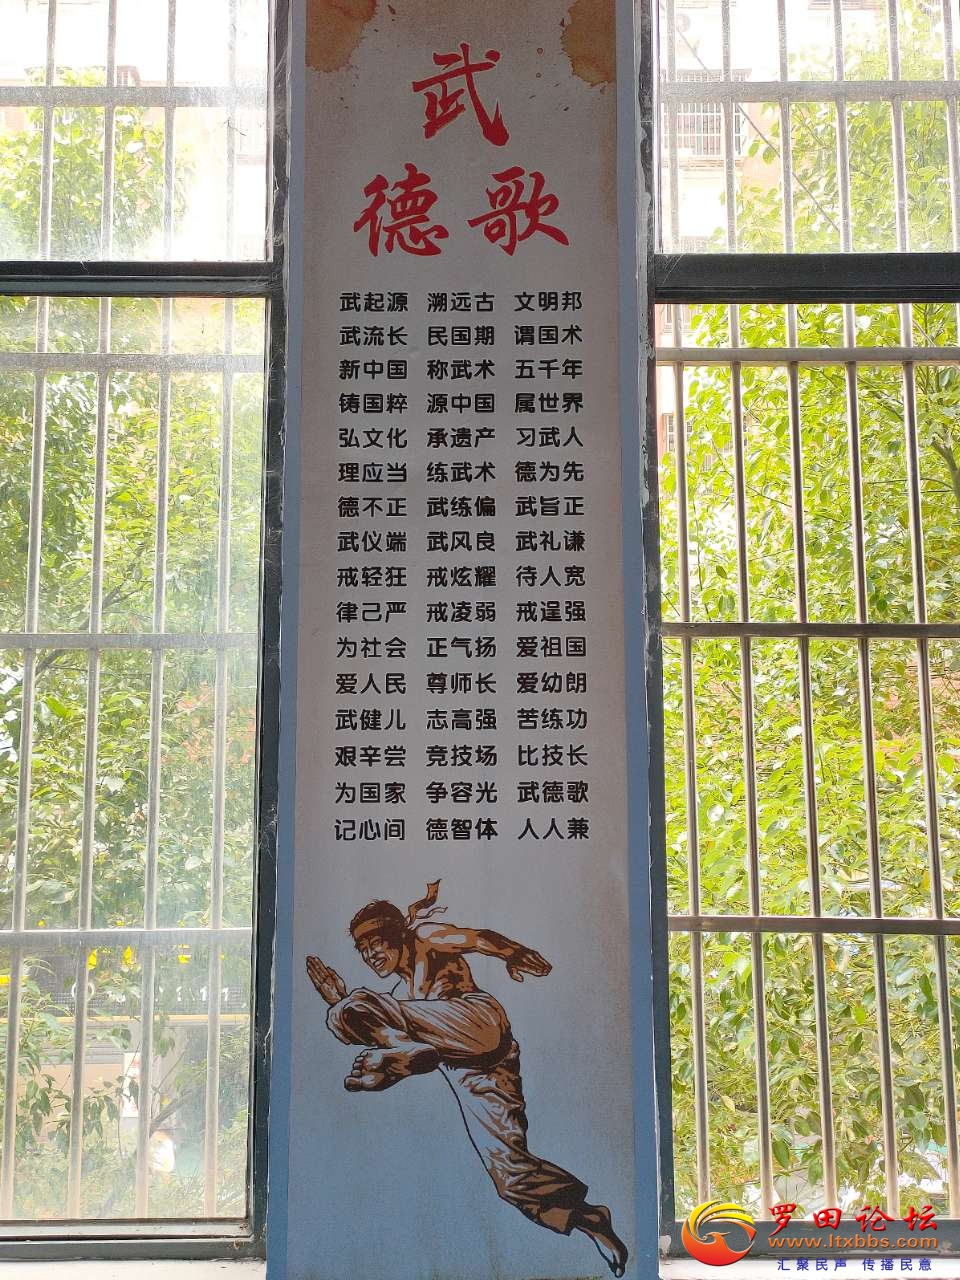 武
德歌
武起源 溯远古 文明邦
武流长 民国期 谓国术
新中国 称武术 五千年
铸国粹 源中国 属世界
弘文化 承遗产 习武人
理应当 练武术 德为先
德不正 武练偏 武旨正
武仪端 武风良 武礼谦
戒轻狂 戒炫耀 待人宽
律己严 戒凌弱 戒逞强
为社会 正气扬 爱祖国
爱人民 尊师长 爱幼朗
武健儿 志高强 苦练功
艰辛尝 竞技场 比技长
为国家 争容光 武德歌
记心间 德智体 人人兼
罗田论坛
www.ltxbbs.com
汇聚民声 传播民意